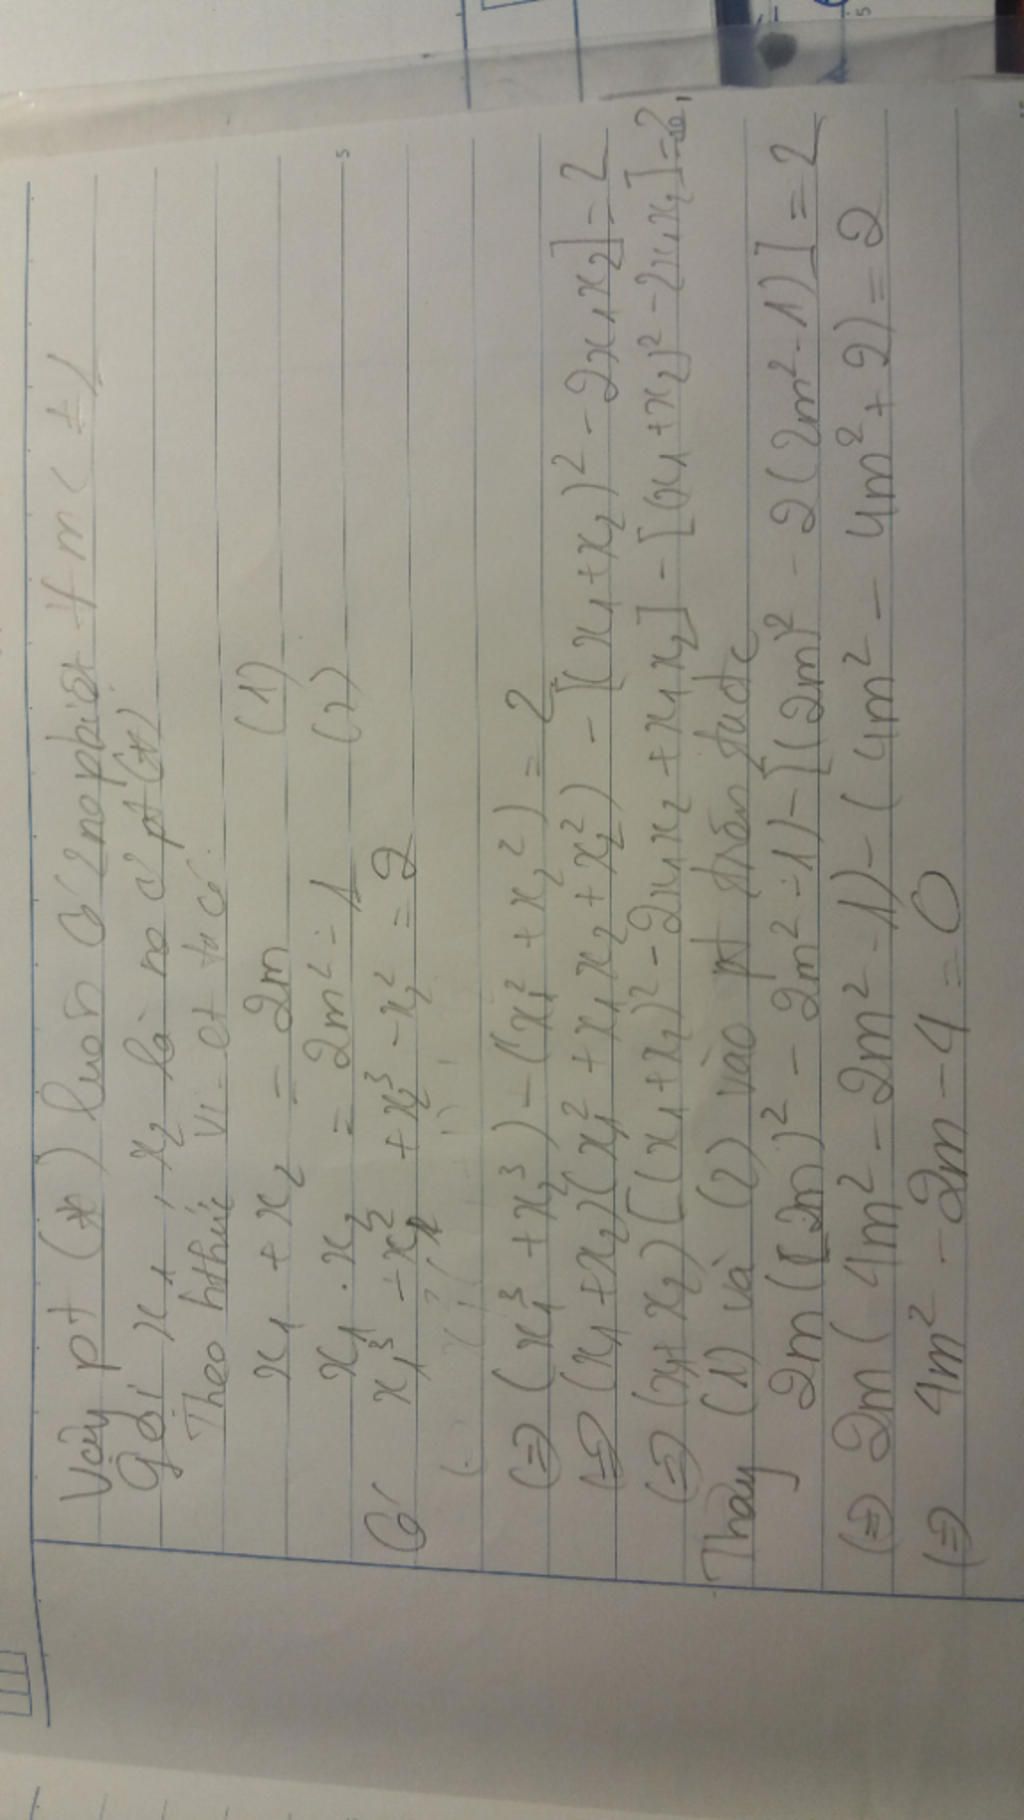 Vậy pt (*) luôn có 2 no pbiệt ∀ m < ± 1
Gọi x₁, x₂ là no c² pt (*)
Theo hthức vi-et ta có
x₁ + x₂ = 2m (1)
x₁ . x₂ = 2m² - 1 (2)
Có x₁³ - x₁² + x₂³ - x₂² = 2
(=) (x₁³ + x₂³) - (x₁² + x₂²) = 2
(=) (x₁ + x₂)(x₁² + x₁x₂ + x₂²) - [(x₁ + x₂)² - 2x₁x₂] = 2
(=) (x₁ + x₂)[(x₁ + x₂)² - 2x₁x₂ + x₁x₂] - [(x₁ + x₂)² - 2x₁x₂] = 2
Thay (1) và (2) vào pt trên được
2m[(2m)² - 2m² - 1) - [(2m)² - 2(2m² - 1)] = 2
(=) 2m(4m² - 2m² - 1) - (4m² - 4m² + 2) = 2
(=) 4m² - 2m - 4 = 0